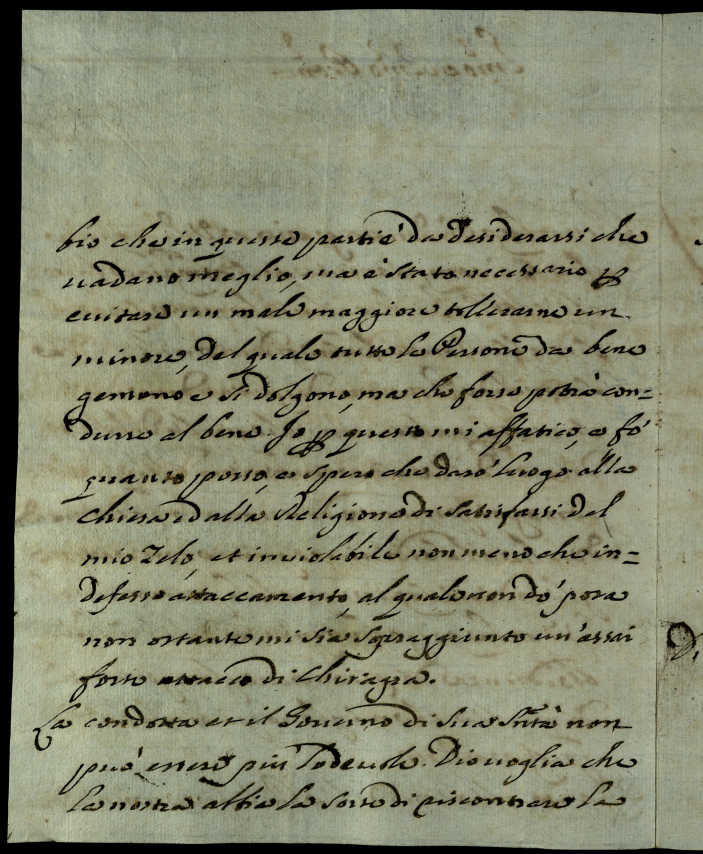 bio che in queste parti è da desiderarsi che
vadano meglio, ma è stato necessario p
evitare un male maggiore tollerarne un
minore, del quale tutte le Persone da bene
gemono e si dolgono, ma che forse potrà con=
durre al bene. Io p questo mi affatico, e fò
quanto posso, e spero che darò luogo alla
Chiesa ed alla Religione di satisfarsi del
mio Zelo, et inviolabile non meno che in=
defesso attaccamento, al quale non dò posa
non ostante mi sia sopraggiunto un'assai
forte attacco di Chiragra.
La condotta et il Governo di Sua Sntà non
può essere più lodevole. Dio voglia che
la nostra abbia la sorte di riscontrare la